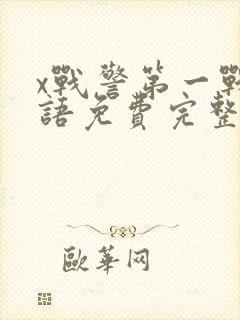 x戰警第一戰
語免費完整
歐華网